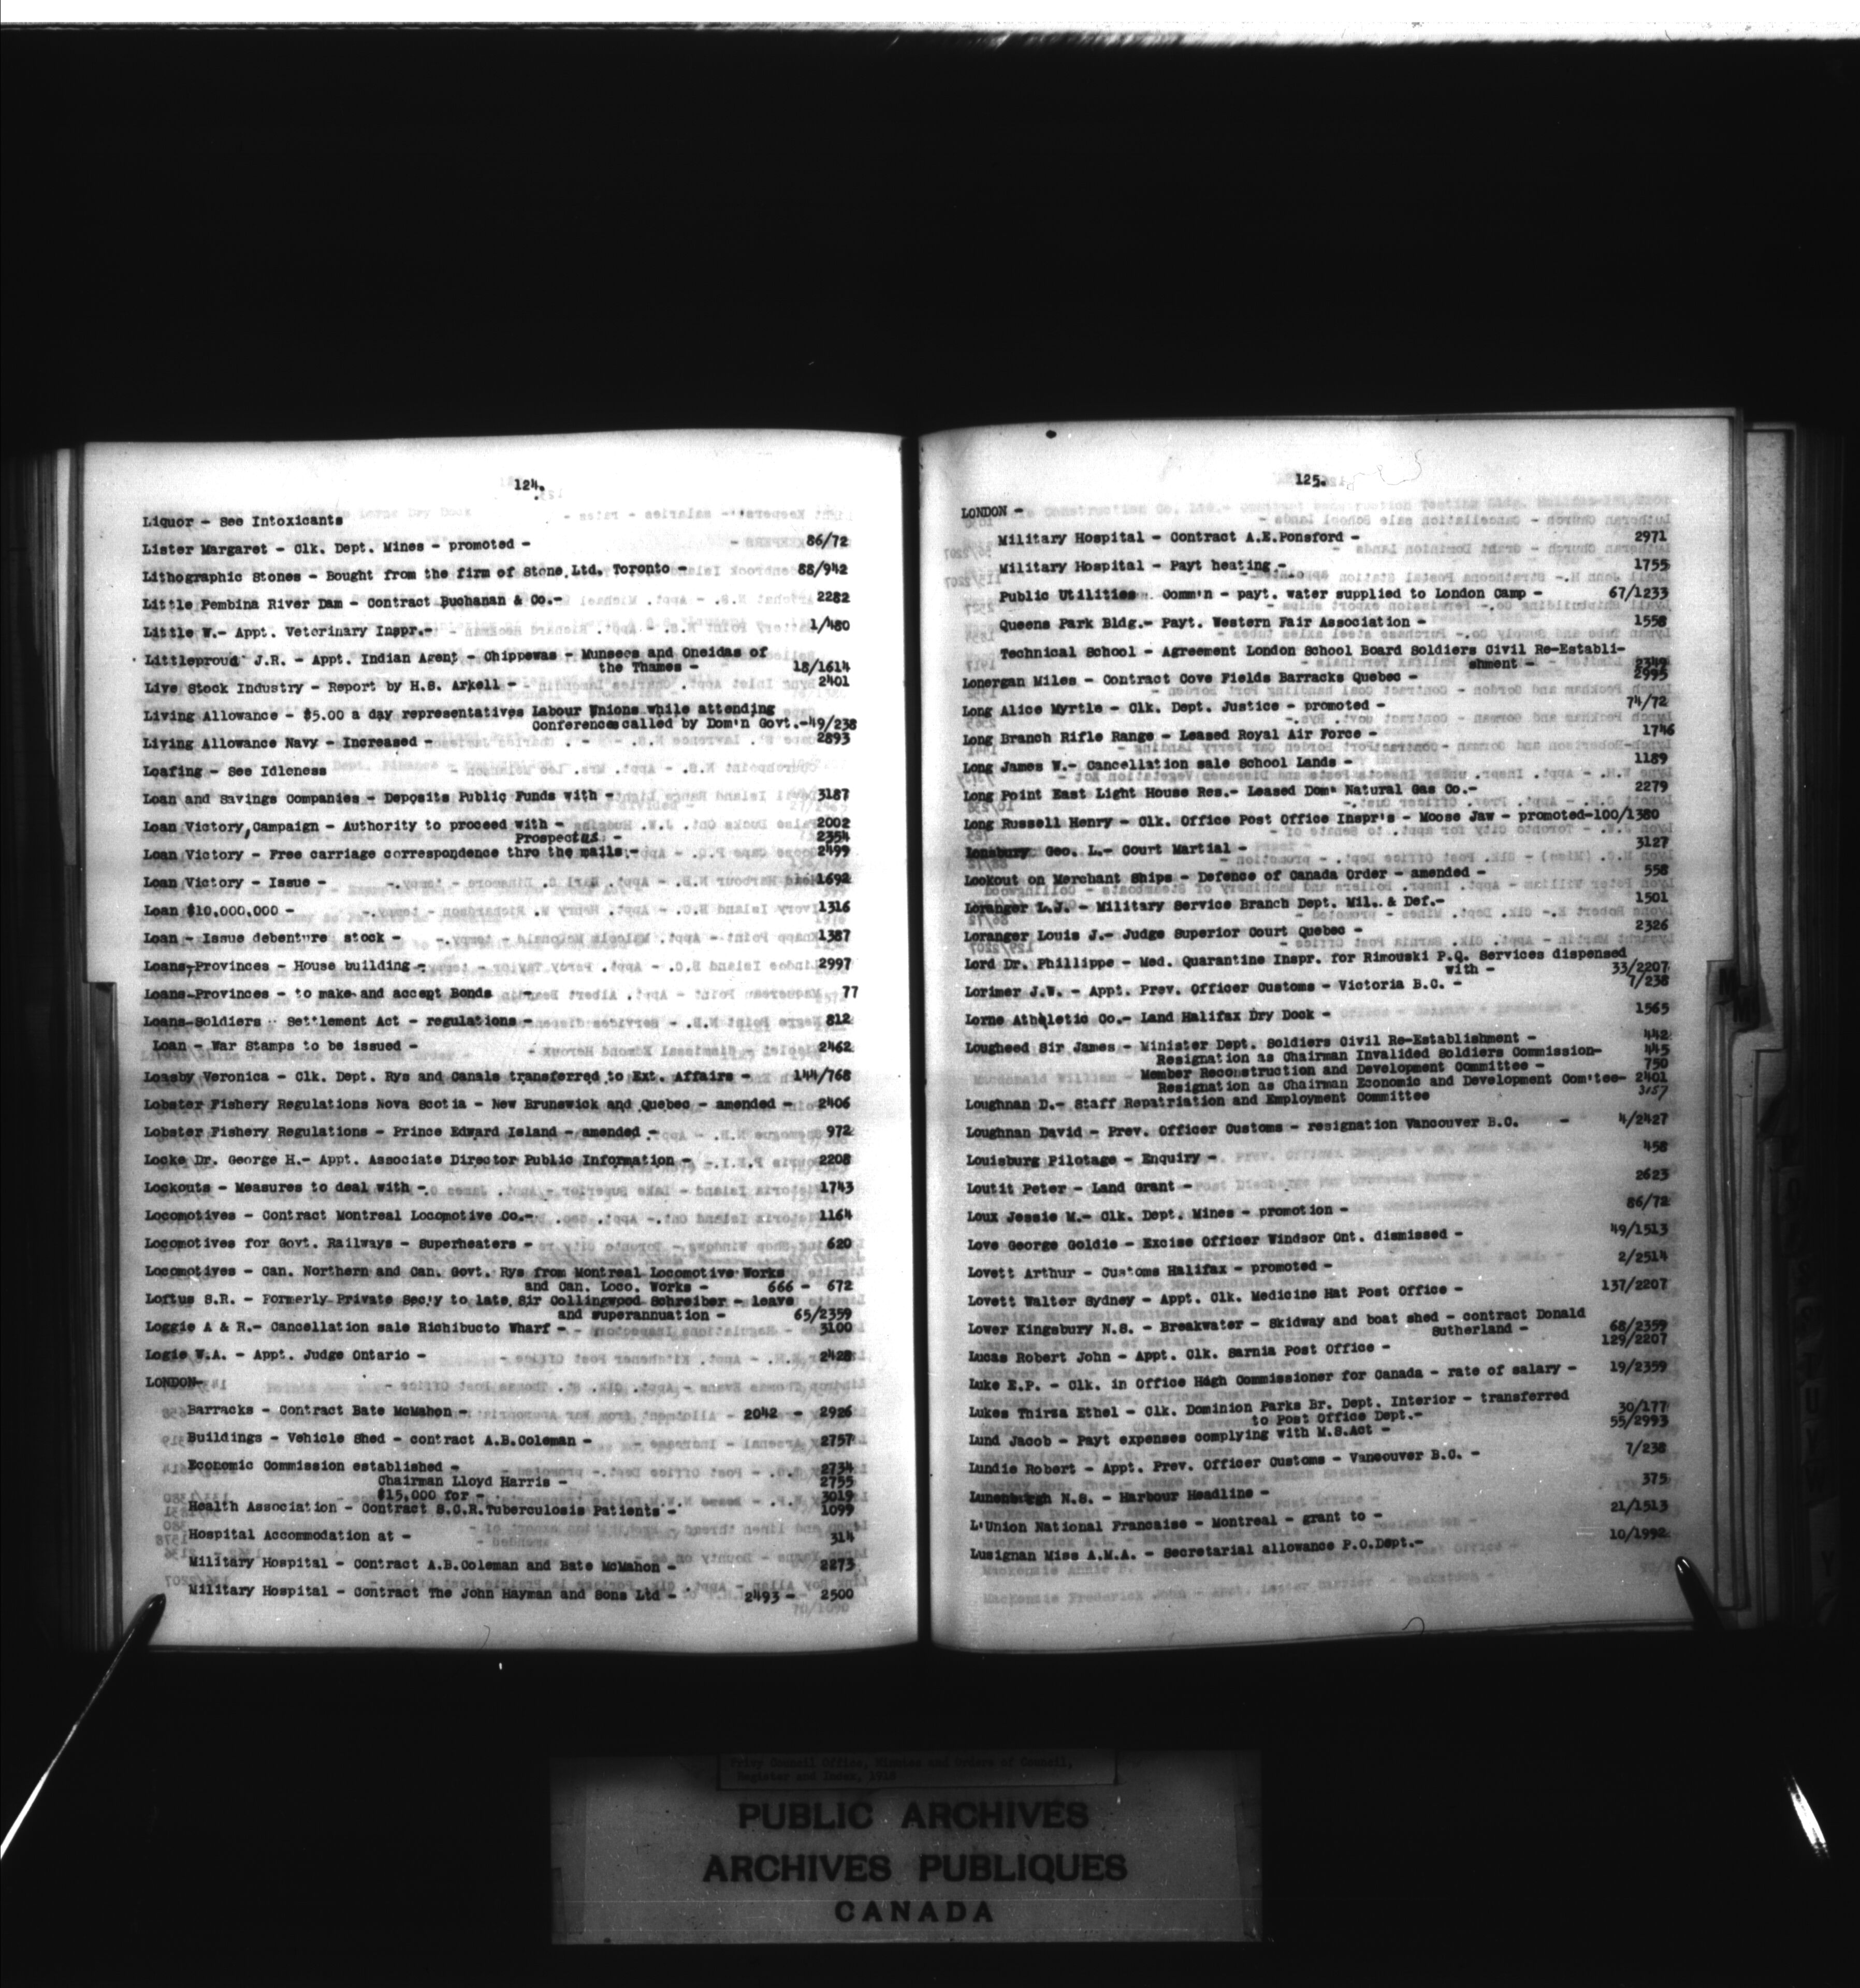 124.
Liquor - See Intoxicants
Lister Margaret - Clk. Dept. Mines - promoted - 86/72
Lithographic Stones - Bought from the firm of Stone, Ltd. Toronto - 88/942
Little Pembina River Dam - Contract Buchanan & Co.- 2282
Little W.- Appt. Veterinary Inspr.- 1/480
Littleproud J.R. - Appt. Indian Agent - Chippewas - Munsees and Oneidas of
the Thames - 18/1614
Live Stock Industry - Report by H.S. Arkell - 2401
Living Allowance - $5.00 a day representatives Labour Unions while attending
Conferences called by Dom'n Govt.-49/238
Living Allowance Navy - Increased - 2893
Loafing - See Idleness
Loan and Savings Companies - Deposits Public Funds with - 3187
Loan Victory, Campaign - Authority to proceed with - 2002
Prospectus - 2354
Loan Victory - Free carriage correspondence thro the mails - 2499
Loan Victory - Issue - 1692
Loan $10,000,000 - 1316
Loan - Issue debenture stock - 1387
Loans-Provinces - House building - 2997
Loans-Provinces - to make and accept Bonds - 77
Loans-Soldiers Settlement Act - regulations - 812
Loan - War Stamps to be issued - 2462
Loasby Veronica - Clk. Dept. Rys and Canals transferred to Ext. Affairs - 144/768
Lobster Fishery Regulations Nova Scotia - New Brunswick and Quebec - amended - 2406
Lobster Fishery Regulations - Prince Edward Island - amended - 972
Locke Dr. George H.- Appt. Associate Director Public Information - 2208
Lockouts - Measures to deal with - 1743
Locomotives - Contract Montreal Locomotive Co.- 1164
Locomotives for Govt. Railways - Superheaters - 620
Locomotives - Can. Northern and Can. Govt. Rys from Montreal Locomotive Works
and Can. Loco. Works - 666 - 672
Loftus S.R. - Formerly Private Sec'y to late Sir Collingwood Schreiber - leave
and superannuation - 65/2359
Loggie A & R.- Cancellation sale Richibucto Wharf - 3100
Logie W.A. - Appt. Judge Ontario - 2428
LONDON-
Barracks - Contract Bate McMahon - 2042 - 2926
Buildings - Vehicle Shed - contract A.B.Coleman - 2757
Economic Commission established - 2734
Chairman Lloyd Harris - 2755
$15,000 for - 3019
Health Association - Contract S.C.R.Tuberculosis Patients - 1099
Hospital Accommodation at - 314
Military Hospital - Contract A.B.Coleman and Bate McMahon - 2273
Military Hospital - Contract The John Hayman and Sons Ltd - 2493 - 2500
125.
LONDON -
Military Hospital - Contract A.E.Ponsford - 2971
Military Hospital - Payt heating - 1755
Public Utilities Comm'n - payt. water supplied to London Camp - 67/1233
Queens Park Bldg.- Payt. Western Fair Association - 1558
Technical School - Agreement London School Board Soldiers Civil Re-Establi-
shment - 2349
Lonergan Miles - Contract Cove Fields Barracks Quebec - 2995
Long Alice Myrtle - Clk. Dept. Justice - promoted - 74/72
Long Branch Rifle Range - Leased Royal Air Force - 1746
Long James W.- Cancellation sale School Lands - 1189
Long Point East Light House Res.- Leased Dom' Natural Gas Co.- 2279
Long Russell Henry - Clk. Office Post Office Inspr's - Moose Jaw - promoted-100/1380
Lonsbury Geo. L.- Court Martial - 3127
Lookout on Merchant Ships - Defence of Canada Order - amended - 558
Loranger L.J. - Military Service Branch Dept. Mil. & Def.- 1501
Loranger Louis J.- Judge Superior Court Quebec - 2326
Lord Dr. Phillippe - Med. Quarantine Inspr. for Rimouski P.Q. Services dispensed
with - 33/2207
Lorimer J.W. - Appt. Prev. Officer Customs - Victoria B.C. - 7/238
Lorne Athletic Co.- Land Halifax Dry Dock - 1565
Lougheed Sir James - Minister Dept. Soldiers Civil Re-Establishment - 442
Resignation as Chairman Invalided Soldiers Commission- 445
Member Reconstruction and Development Committee - 750
Resignation as Chairman Economic and Development Com'tee- 2401
Loughnan D.- Staff Repatriation and Employment Committee 3157
Loughnan David - Prev. Officer Customs - resignation Vancouver B.C. - 4/2427
Louisburg Pilotage - Enquiry - 458
Loutit Peter - Land Grant - 2623
Loux Jessie M.- Clk. Dept. Mines - promotion - 86/72
Love George Goldie - Excise Officer Windsor Ont. dismissed - 49/1513
Lovett Arthur - Customs Halifax - promoted - 2/2514
Lovett Walter Sydney - Appt. Clk. Medicine Hat Post Office - 137/2207
Lower Kingsbury N.S. - Breakwater - Skidway and boat shed - contract Donald
Sutherland - 68/2359
Lucas Robert John - Appt. Clk. Sarnia Post Office - 129/2207
Luke E.P. - Clk. in Office High Commissioner for Canada - rate of salary - 19/2359
Lukes Thirza Ethel - Clk. Dominion Parks Br. Dept. Interior - transferred
to Post Office Dept.- 30/177
Lund Jacob - Payt expenses complying with M.S.Act - 55/2993
Lundie Robert - Appt. Prev. Officer Customs - Vancouver B.C. - 7/238
Lunenburgh N.S. - Harbour Headline - 375
L'Union National Francaise - Montreal - grant to - 21/1513
Lusignan Miss A.M.A. - Secretarial allowance P.O.Dept.- 10/1992
Privy Council Office, Minutes and Orders of Council,
Register and Index, 1918
PUBLIC ARCHIVES
ARCHIVES PUBLIQUES
CANADA